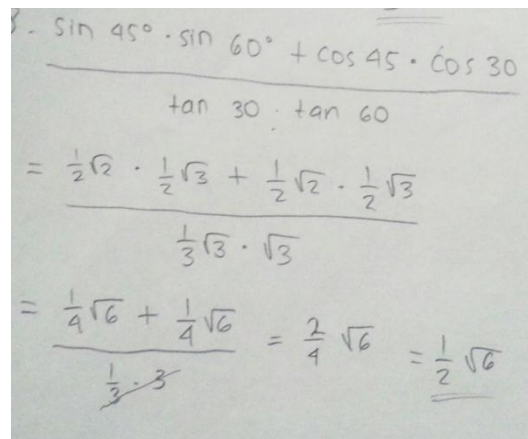 3. sin 45° · sin 60° + cos 45 · cos 30
tan 30 · tan 60
= 1/2 √2 · 1/2 √3 + 1/2 √2 · 1/2 √3
1/3 √3 · √3
= 1/4 √6 + 1/4 √6 = 2/4 √6 = 1/2 √6
1/3 · 3